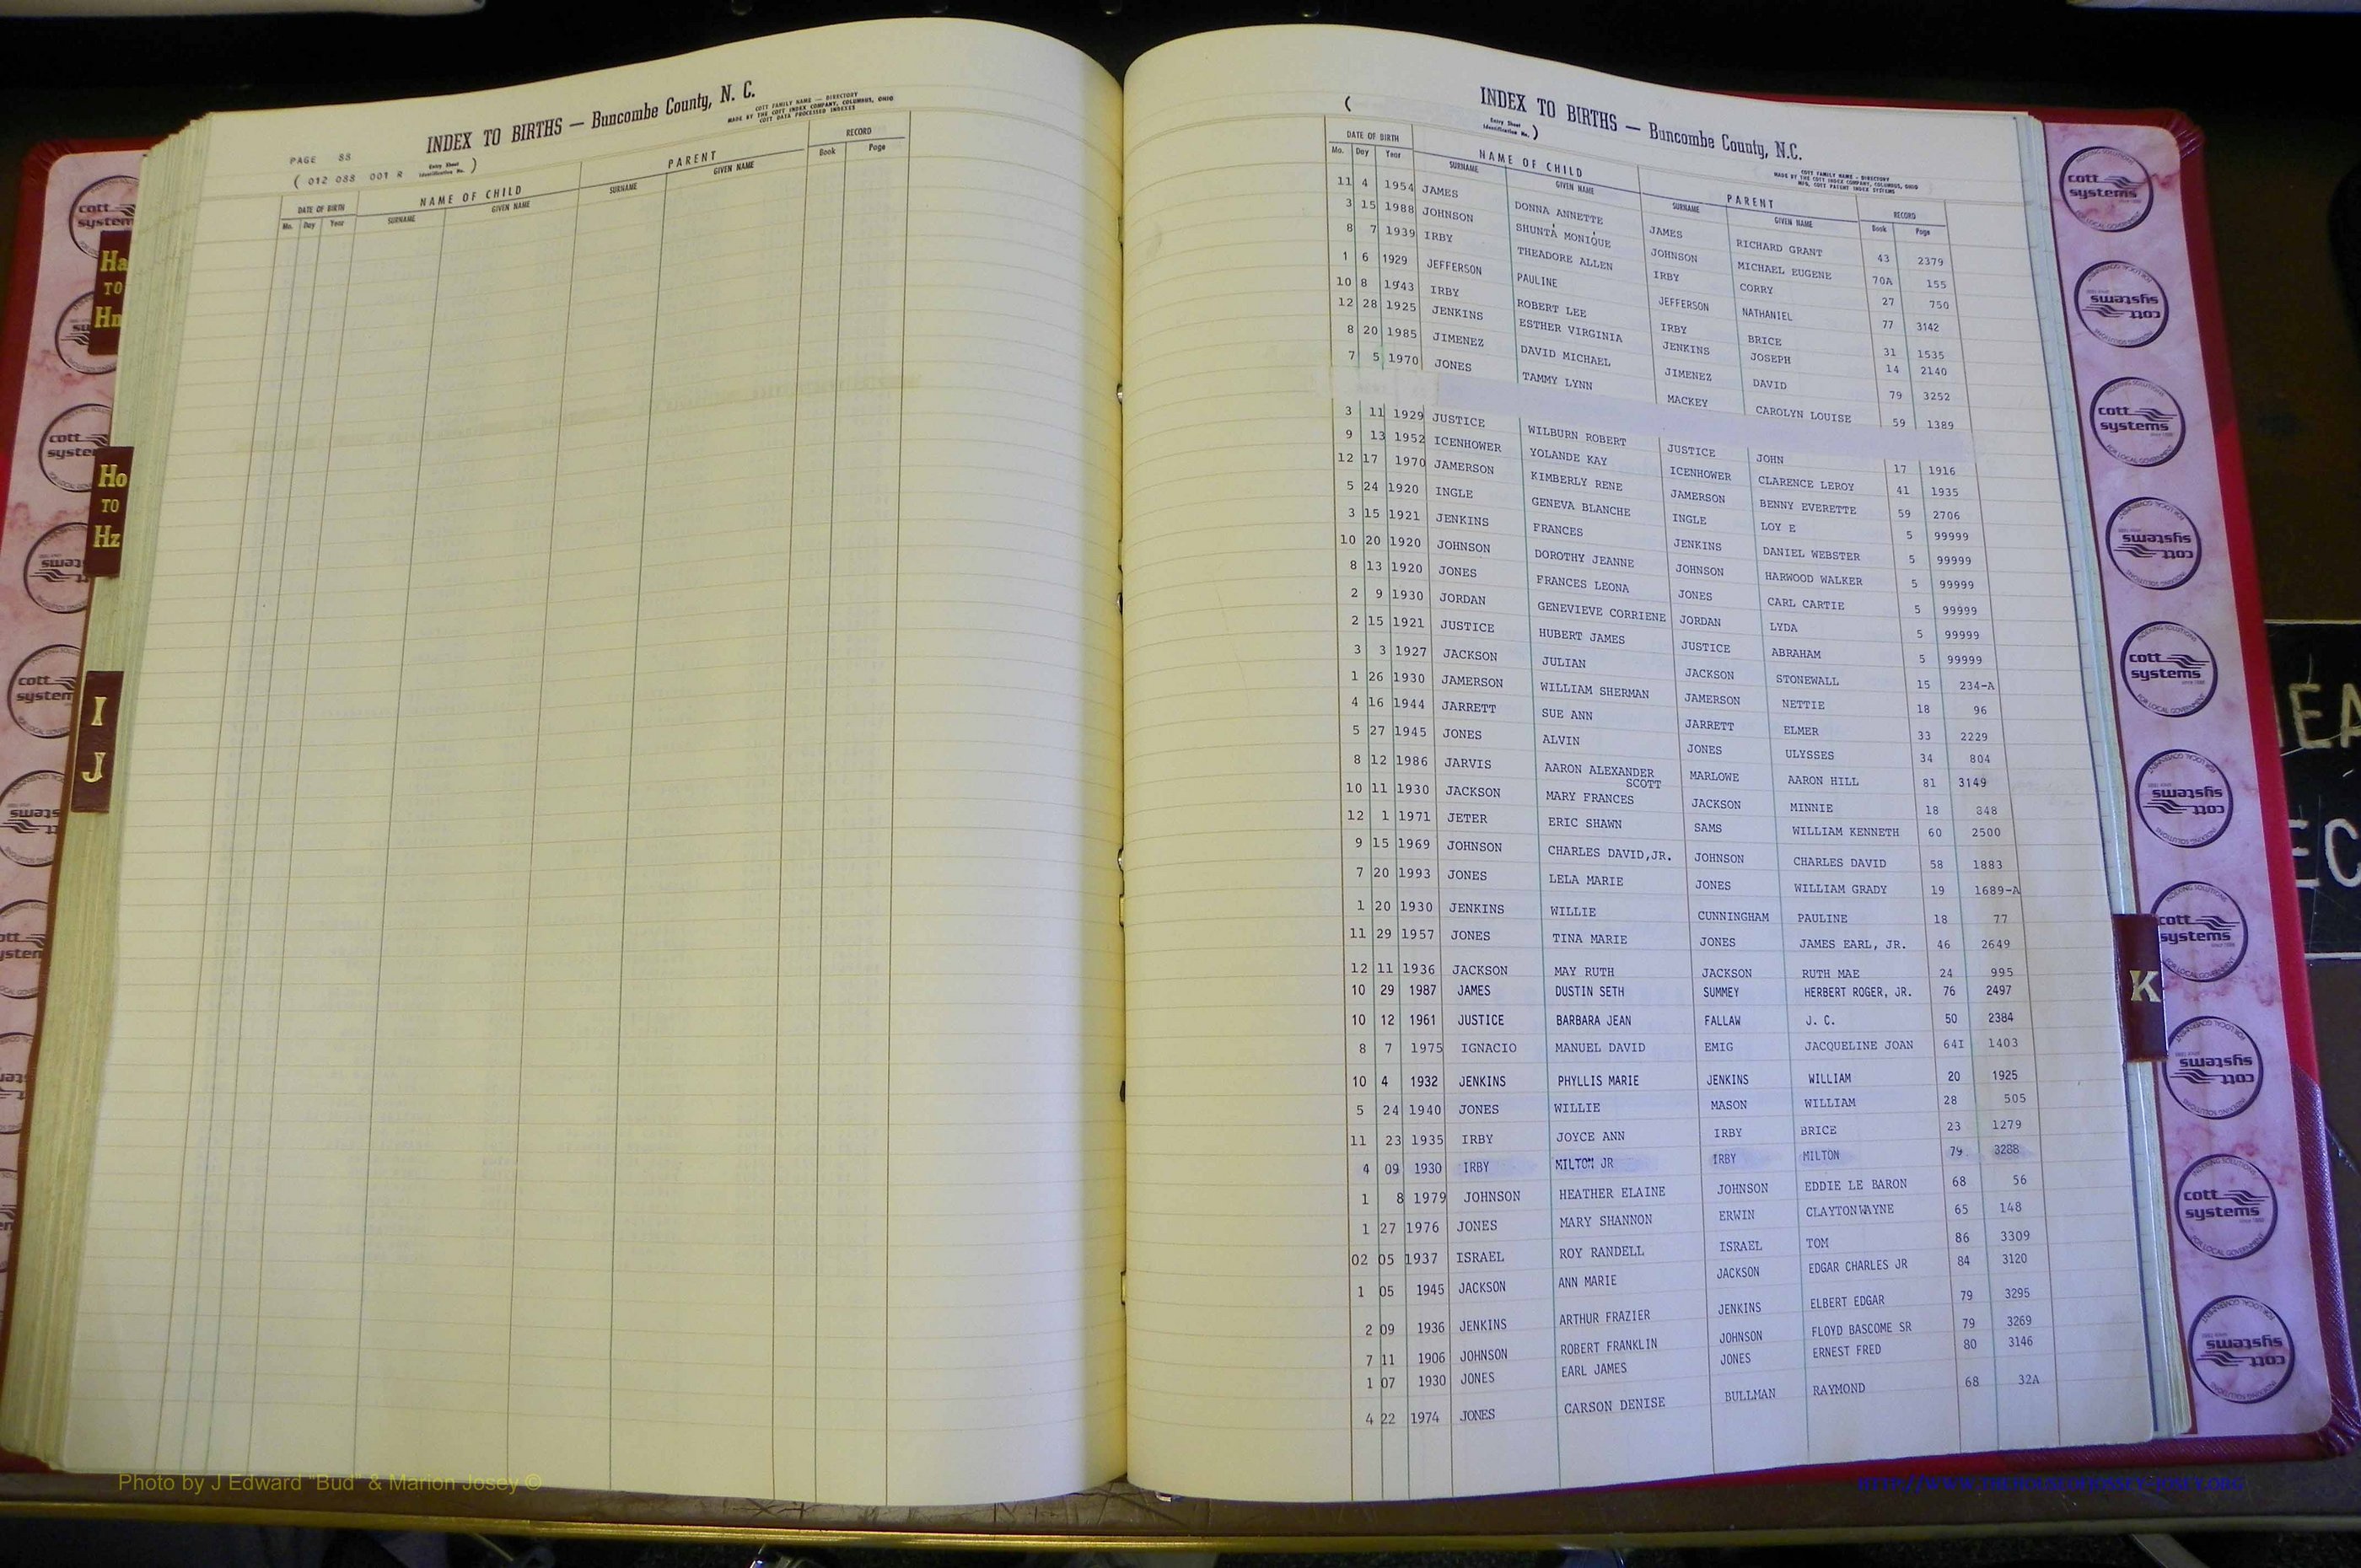 INDEX TO BIRTHS — Buncombe County, N. C.
COTT FAMILY NAME — DIRECTORY
MADE BY THE COTT INDEX COMPANY, COLUMBUS, OHIO
COTT DATA PROCESSED INDEXES
PAGE 88
( 012 088 001 R Entry Sheet Identification No. )
DATE OF BIRTH NAME OF CHILD PARENT RECORD
Mo. Day Year SURNAME GIVEN NAME SURNAME GIVEN NAME Book Page
Ha TO
Ho TO Hz
I
J
INDEX TO BIRTHS — Buncombe County, N.C.
( Entry Sheet Identification No. )
COTT FAMILY NAME — DIRECTORY
MADE BY THE COTT INDEX COMPANY, COLUMBUS, OHIO
MFG. COTT PATENT INDEX SYSTEMS
DATE OF BIRTH NAME OF CHILD PARENT RECORD
Mo. Day Year SURNAME GIVEN NAME SURNAME GIVEN NAME Book Page
11 4 1954 JAMES DONNA ANNETTE JAMES RICHARD GRANT 43 2379
3 15 1988 JOHNSON SHUNTA MONIQUE JOHNSON MICHAEL EUGENE 70A 155
8 7 1939 IRBY THEADORE ALLEN IRBY CORRY 27 750
1 6 1929 JEFFERSON PAULINE JEFFERSON NATHANIEL 77 3142
10 8 1943 IRBY ROBERT LEE IRBY BRICE 31 1535
12 28 1925 JENKINS ESTHER VIRGINIA JENKINS JOSEPH 14 2140
8 20 1985 JIMENEZ DAVID MICHAEL JIMENEZ DAVID 79 3252
7 5 1970 JONES TAMMY LYNN MACKEY CAROLYN LOUISE 59 1389
3 11 1929 JUSTICE WILBURN ROBERT JUSTICE JOHN 17 1916
9 13 1952 ICENHOWER YOLANDE KAY ICENHOWER CLARENCE LEROY 41 1935
12 17 1970 JAMERSON KIMBERLY RENE JAMERSON BENNY EVERETTE 59 2706
5 24 1920 INGLE GENEVA BLANCHE INGLE LOY E 5 99999
3 15 1921 JENKINS FRANCES JENKINS DANIEL WEBSTER 5 99999
10 20 1920 JOHNSON DOROTHY JEANNE JOHNSON HARWOOD WALKER 5 99999
8 13 1920 JONES FRANCES LEONA JONES CARL CARTIE 5 99999
2 9 1930 JORDAN GENEVIEVE CORRIENE JORDAN LYDA 5 99999
2 15 1921 JUSTICE HUBERT JAMES JUSTICE ABRAHAM 5 99999
3 3 1927 JACKSON JULIAN JACKSON STONEWALL 15 234-A
1 26 1930 JAMERSON WILLIAM SHERMAN JAMERSON NETTIE 18 96
4 16 1944 JARRETT SUE ANN JARRETT ELMER 33 2229
5 27 1945 JONES ALVIN JONES ULYSSES 34 804
8 12 1986 JARVIS AARON ALEXANDER MARLOWE AARON HILL 81 3149
SCOTT
10 11 1930 JACKSON MARY FRANCES JACKSON MINNIE 18 848
12 1 1971 JETER ERIC SHAWN SAMS WILLIAM KENNETH 60 2500
9 15 1969 JOHNSON CHARLES DAVID,JR. JOHNSON CHARLES DAVID 58 1883
7 20 1993 JONES LELA MARIE JONES WILLIAM GRADY 19 1689-A
1 20 1930 JENKINS WILLIE CUNNINGHAM PAULINE 18 77
11 29 1957 JONES TINA MARIE JONES JAMES EARL, JR. 46 2649
12 11 1936 JACKSON MAY RUTH JACKSON RUTH MAE 24 995
10 29 1987 JAMES DUSTIN SETH SUMMEY HERBERT ROGER, JR. 76 2497
10 12 1961 JUSTICE BARBARA JEAN FALLAW J. C. 50 2384
8 7 1975 IGNACIO MANUEL DAVID EMIG JACQUELINE JOAN 64I 1403
10 4 1932 JENKINS PHYLLIS MARIE JENKINS WILLIAM 20 1925
5 24 1940 JONES WILLIE MASON WILLIAM 28 505
11 23 1935 IRBY JOYCE ANN IRBY BRICE 23 1279
4 09 1930 IRBY MILTON JR IRBY MILTON 79 3288
1 8 1979 JOHNSON HEATHER ELAINE JOHNSON EDDIE LE BARON 68 56
1 27 1976 JONES MARY SHANNON ERWIN CLAYTONWAYNE 65 148
02 05 1937 ISRAEL ROY RANDELL ISRAEL TOM 86 3309
1 05 1945 JACKSON ANN MARIE JACKSON EDGAR CHARLES JR 84 3120
2 09 1936 JENKINS ARTHUR FRAZIER JENKINS ELBERT EDGAR 79 3295
7 11 1906 JOHNSON ROBERT FRANKLIN JOHNSON FLOYD BASCOME SR 79 3269
1 07 1930 JONES EARL JAMES JONES ERNEST FRED 80 3146
4 22 1974 JONES CARSON DENISE BULLMAN RAYMOND 68 32A
K
cott systems
Photo by J Edward "Bud" & Marion Josey ©
HTTP://WWW.THEHOUSEOFJOSSEY-JOSEY.ORG